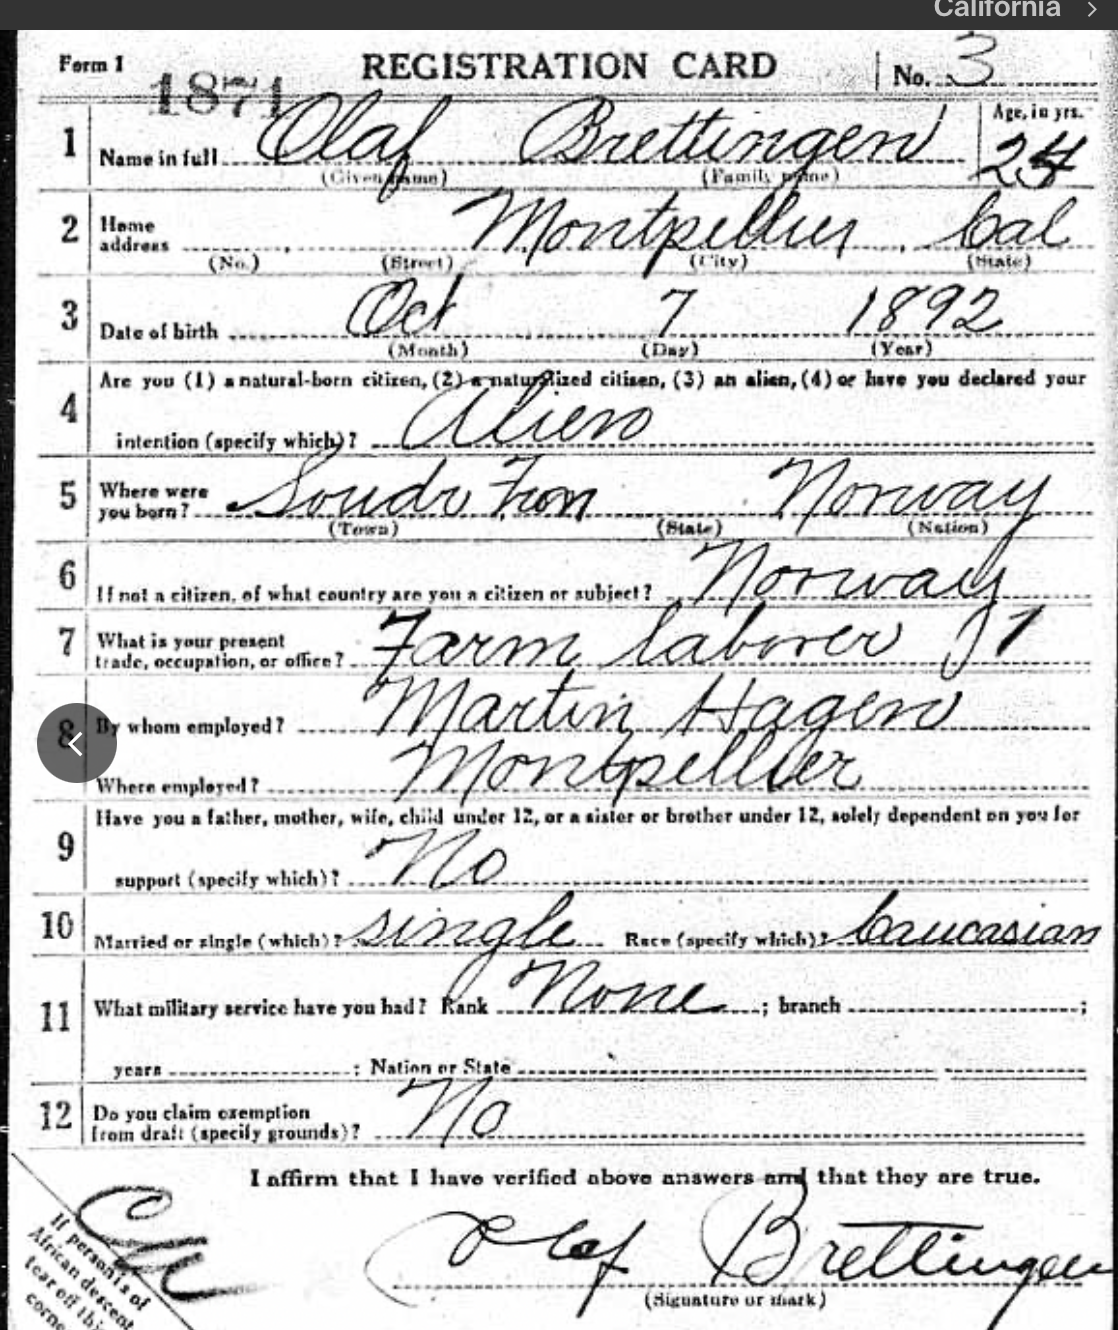 California
Form 1 REGISTRATION CARD No. 3
1871
1 Name in full Olaf Brettingen Age, in yrs.
(Given name) (Family name) 24
2 Home address Montpellier, Cal
(No.) (Street) (City) (State)
3 Date of birth Oct 7 1892
(Month) (Day) (Year)
4 Are you (1) a natural-born citizen, (2) a naturalized citizen, (3) an alien, (4) or have you declared your
intention (specify which)? Alien
5 Where were you born? Norway
(Town) (State) (Nation)
6 If not a citizen, of what country are you a citizen or subject? Norway
7 What is your present trade, occupation, or office? Farm laborer
8 By whom employed? Martin Hagen
Where employed? Montpellier
9 Have you a father, mother, wife, child under 12, or a sister or brother under 12, solely dependent on you for
support (specify which)? No
10 Married or single (which)? single Race (specify which)? Caucasian
11 What military service have you had? Rank None ; branch ;
years ; Nation or State
12 Do you claim exemption from draft (specify grounds)? No
I affirm that I have verified above answers and that they are true.
Olaf Brettingen
(Signature or mark)
If person is of
African descent
tear off this